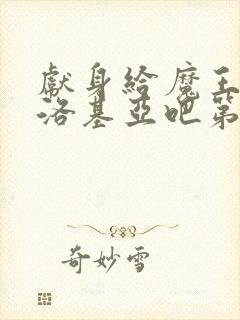 獻身給魔王
洛基亞吧第
奇妙雪